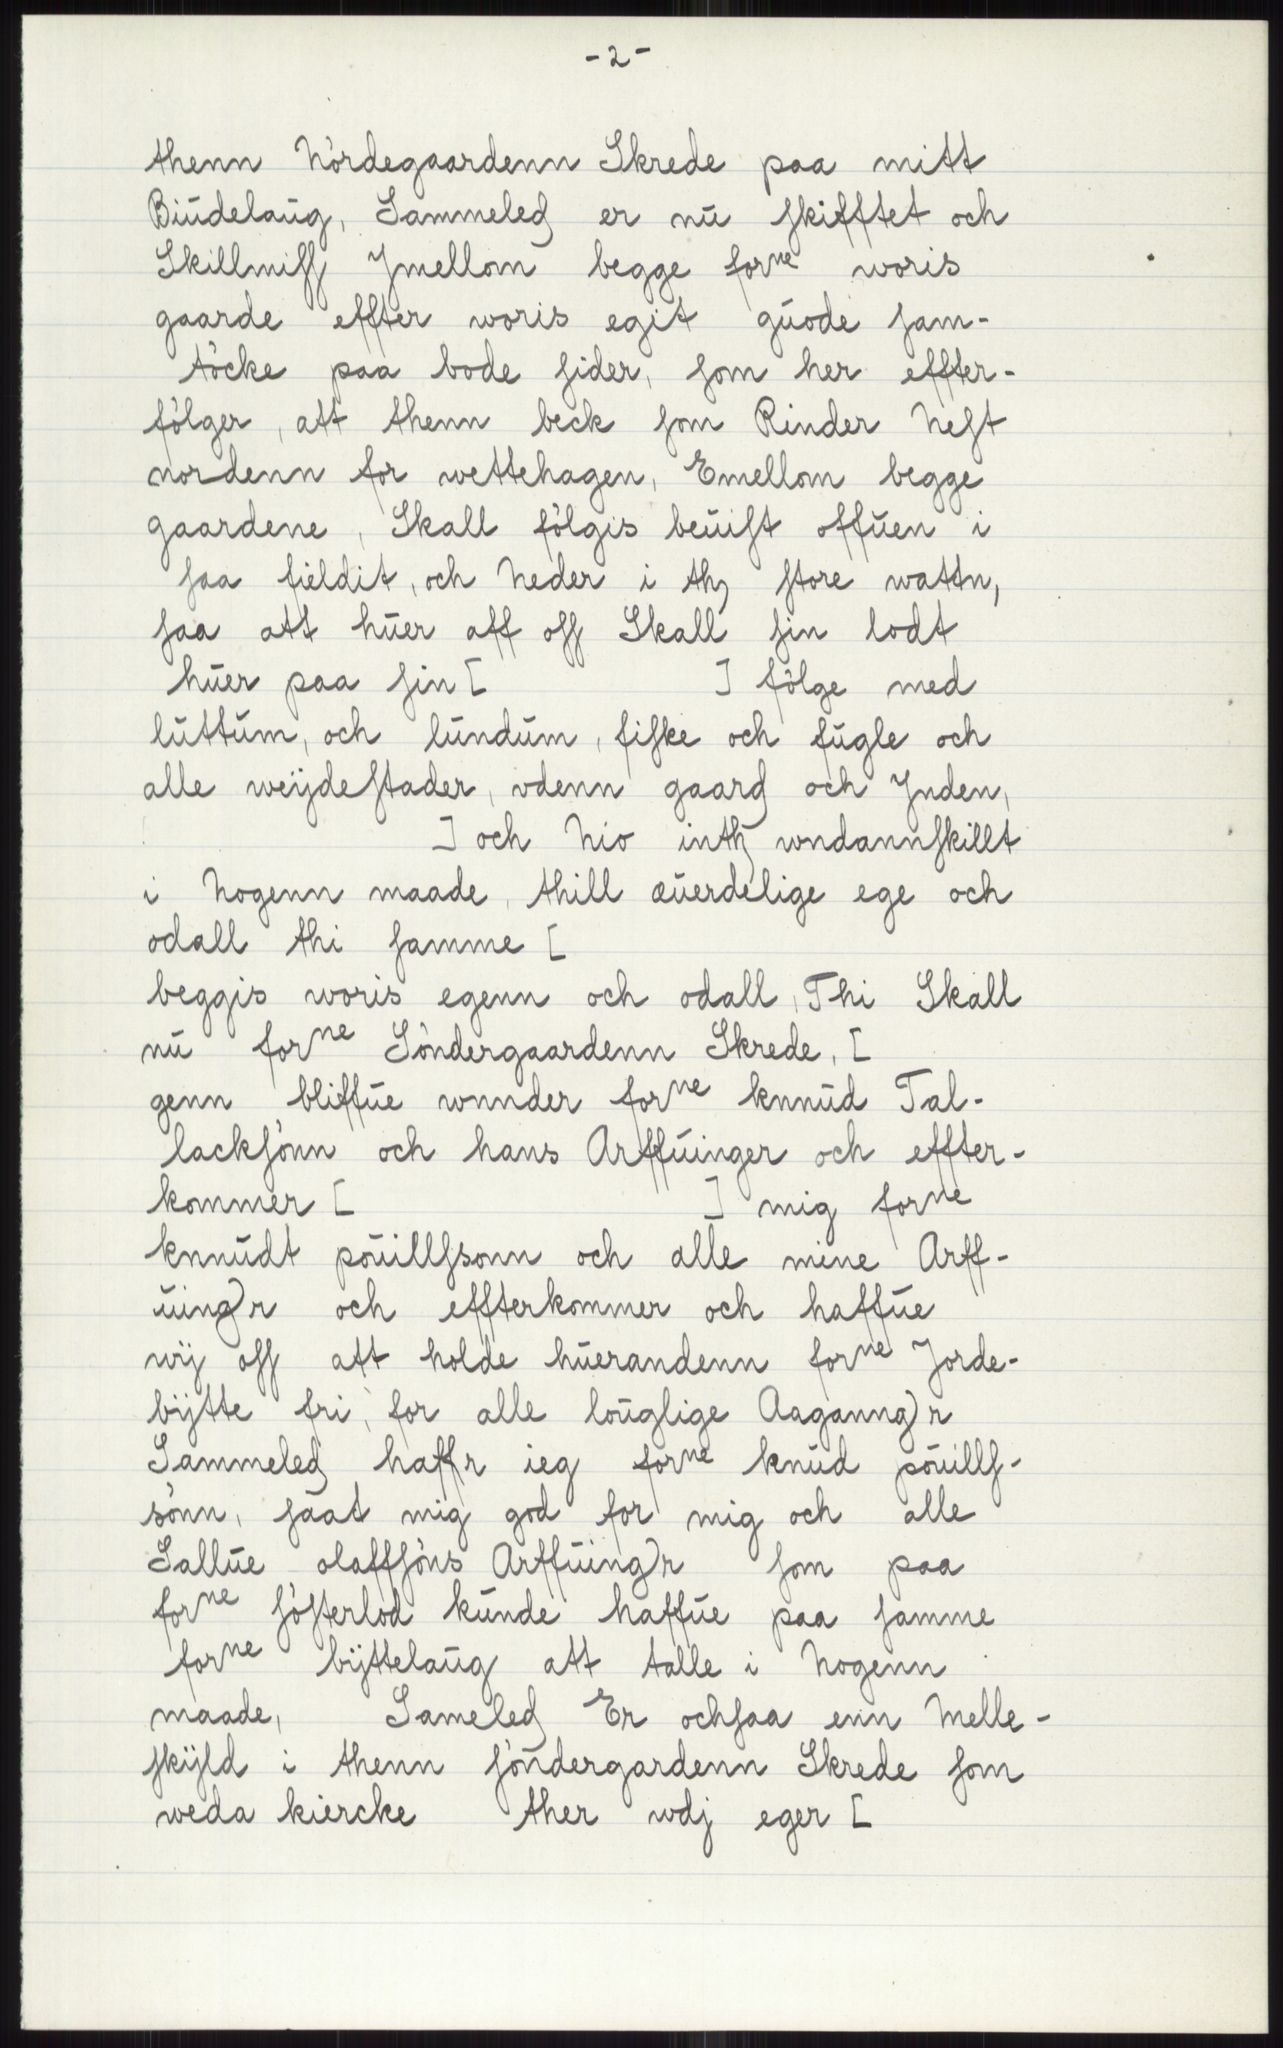 - 2 -
thenn Nördegaardenn Skrede paa mitt
Biudelaug, Sammeledꝭ er nu skifftet och
Skillmiss Jmellom begge forne woris
gaarde effter woris egit guode sam-
töcke paa bode sider, som her effter-
fölger, att thenn beck som Rinder Nest
nordenn for wettehagen, Emellom begge
gaardene, Skall fölgis beuist offuen i
saa fieldit, och Neder i thꝫ store wattn,
saa att huer aff oss Skall sin lodt
huer paa sin [ ] fölge med
luttum, och lundum, fiske och fugle och
alle weijdestader, vdenn gaardꝭ och Jnden,
] och Nio inthꝫ wndannskillt
i Nogenn maade, thill æuerdelige ege och
odall thi samme [
beggis woris egenn och odall, Thi Skall
nu forne Söndergaardenn Skrede, [
genn bliffue wnnder forne knnud Tal-
lacksönn och hans Arffuinger och effter-
kommer [ ] mig forne
knnudt pouillssonn och alle mine Arff-
uing)r och effterkommer och haffue
wij oss att holde huerandenn forne Jorde-
bijtte fri, for alle louglige Aaganng)r
Sammeledꝭ haffr ieg forne knud pouills-
sönn, saat mig god for mig och alle
Sallue olaffsöns Arffuing)r som paa
forne sösterlod kunde haffue paa samme
forne bijttelaug att talle i Nogenn
maade, Sameledꝭ Er ochsaa enn Melle-
skijld i thenn söndergardenn Skrede som
weda kiercke ther wdj eger [